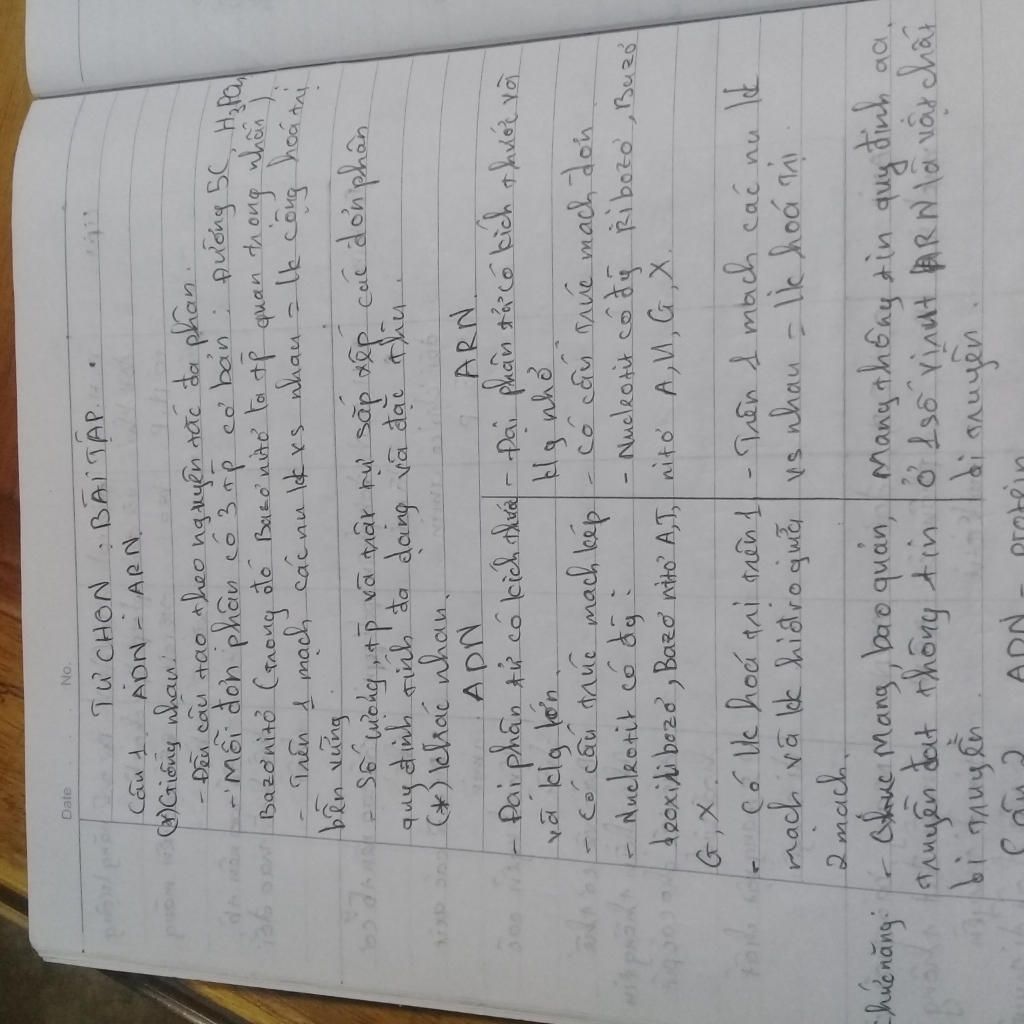 Date No.
TỰ CHỌN : BÀI TẬP.
Câu 1 ADN - ARN
(*) Giống nhau:
- Đều cấu tạo theo nguyên tắc đa phân.
- Mỗi đơn phân có 3 tp cơ bản : Đường 5C, H3PO4,
Bazơnitơ (trong đó Bazơ nitơ là tp quan trọng nhất)
- Trên 1 mạch các nu lk vs nhau = lk cộng hoá trị
bền vững
- Số lượng, tp và trật tự sắp xếp các đơn phân
quy định tính đa dạng và đặc thù.
(*) Khác nhau.
ADN ARN
- Đại phân tử có kích thước
và klg lớn.
- Có cấu trúc mạch kép
- Nucleotit có đg:
đeoxiribozơ, Bazơ nitơ A,T,
G, X
- Có lk hoá trị trên 1
mạch và lk hiđro giữa
2 mạch.
- Đại phân tử có kích thước và
klg nhỏ
- Có cấu trúc mạch đơn
- Nucleotit có đg Ribozơ, Bazơ
nitơ A, U, G, X.
- Trên 1 mạch các nu lk
vs nhau = lk hoá trị
chức năng:
- Mang, bảo quản,
truyền đạt thông tin
di truyền
Mang thông tin quy định aa.
Ở 1 số virut ARN là vật chất
di truyền.
Câu 2 ADN - protein